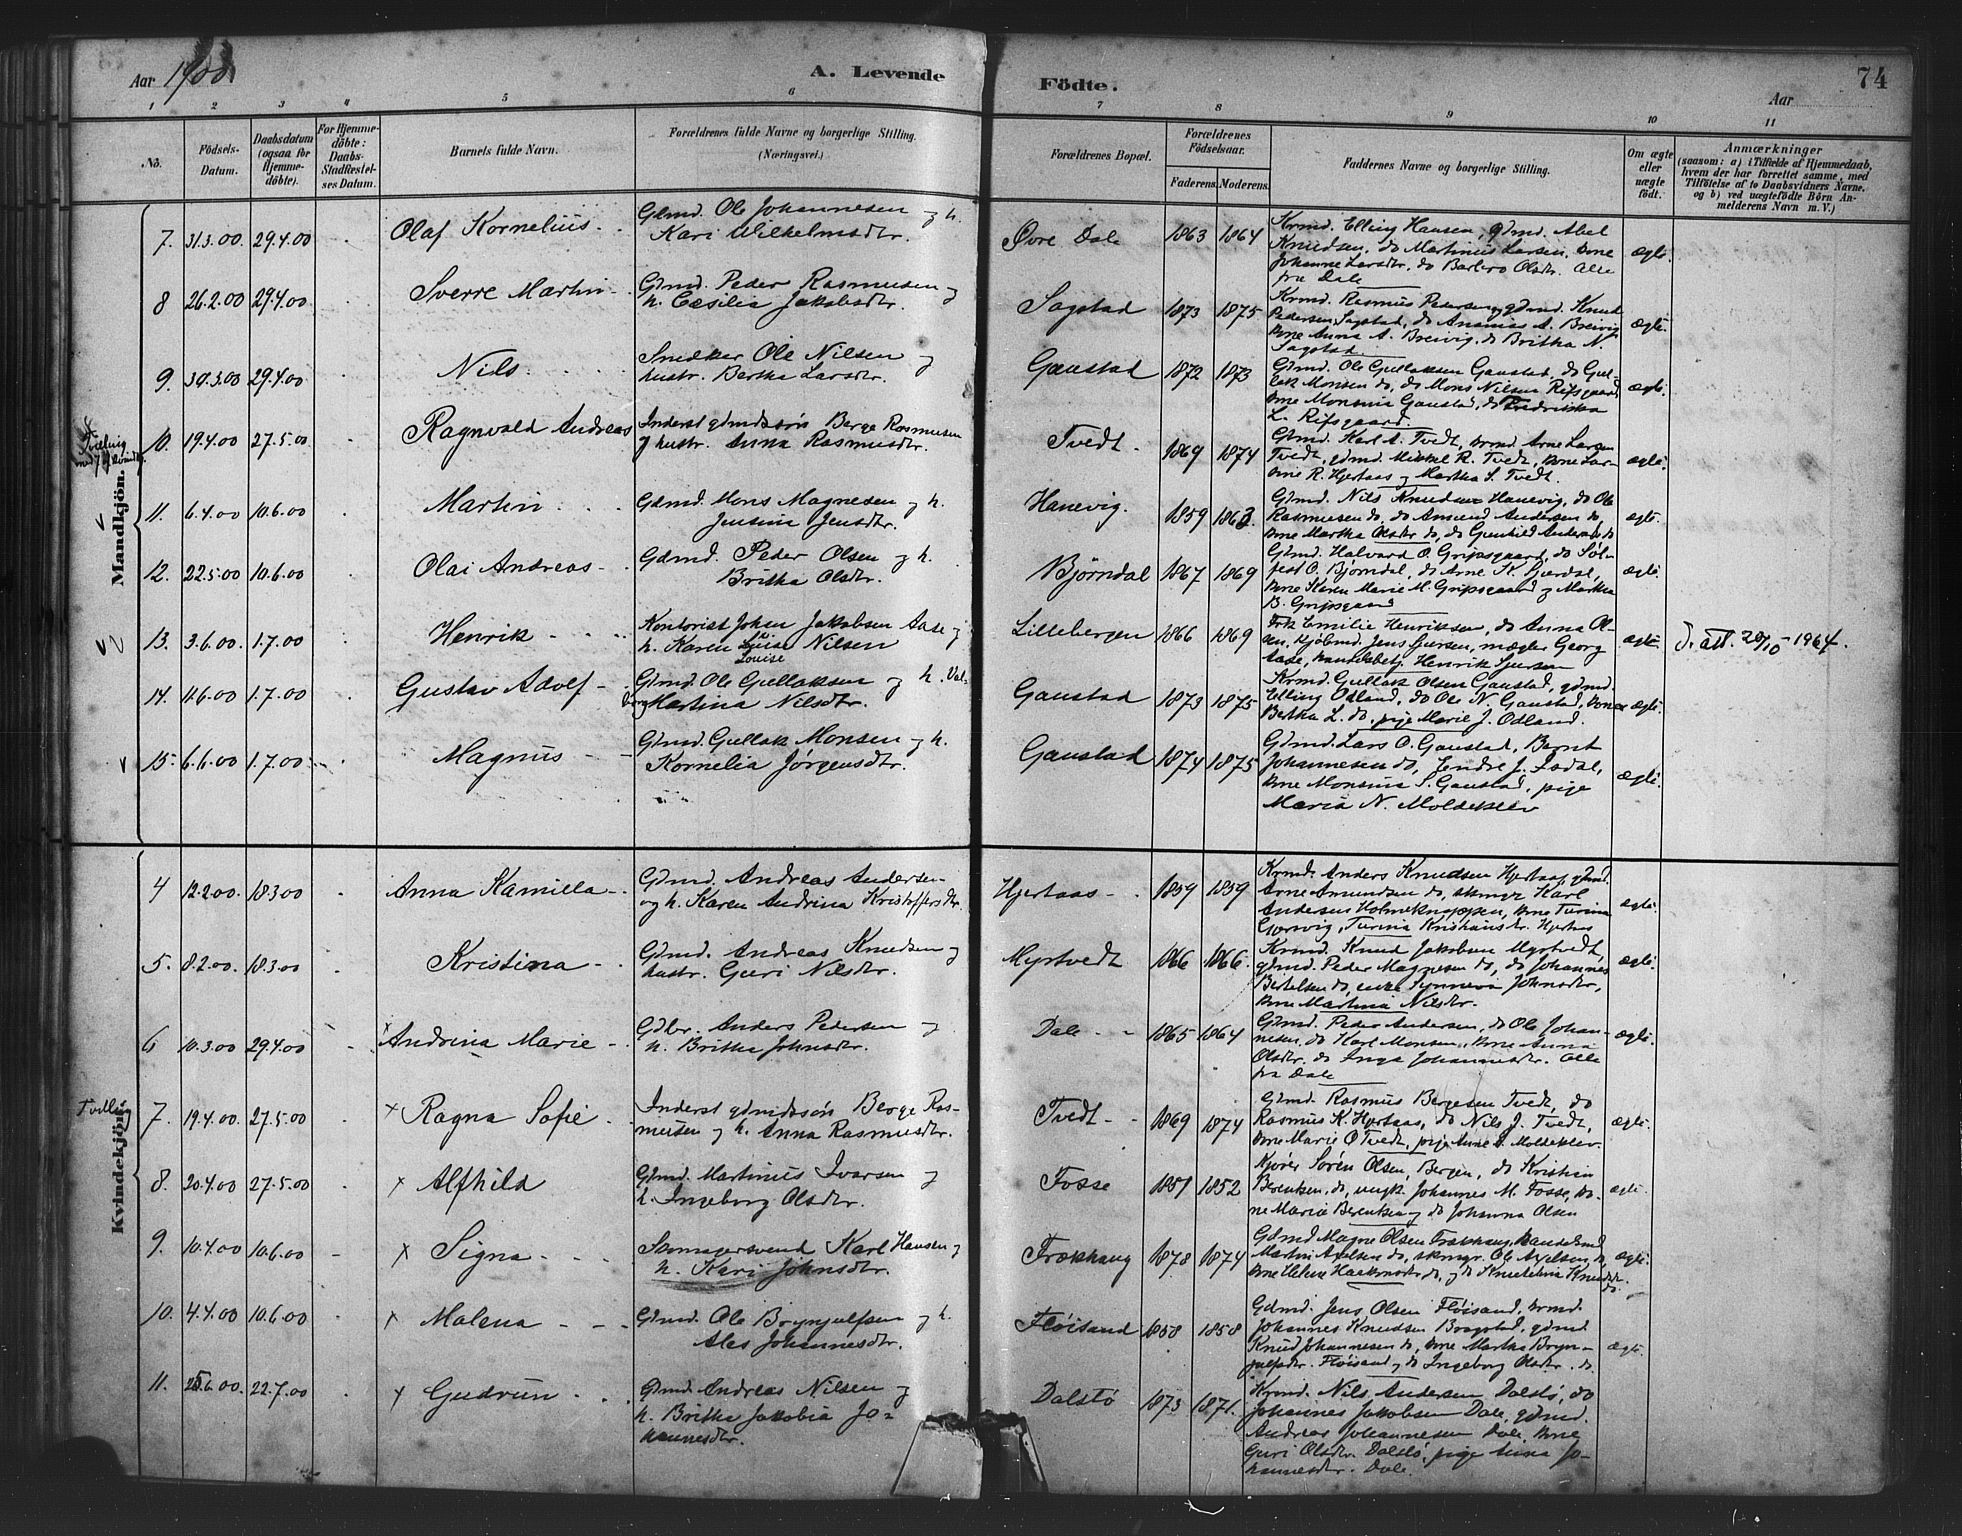 Aar 1900
A. Levende Födte.
Aar
74
1 2 3 4 5 6 7 8 9 10 11
No.
Födsels-Datum.
Daabsdatum (ogsaa for Hjemme-döbte).
For Hjemme-döbte: Daabs-Stadfæstel-ses Datum.
Barnets fulde Navn.
Forældrenes fulde Navne og borgerlige Stilling. (Næringsvei.)
Forældrenes Bopæl.
Forældrenes Födselsaar.
Faderens. Moderens.
Faddernes Navne og borgerlige Stilling.
Om ægte eller uægte födt.
Anmærkninger
(saasom: a) i Tilfælde af Hjemmedaab, hvem der har forrettet samme, med Tilföielse af to Daabsvidners Navne, og b) ved uægtefödte Börn Anmelderens Navn m. V.)
Mandkjön.
7. 31.3.00 29.4.00 Olaf Kornelius Gdmd. Ole Johannesen og h. Kari Wilhelmsdtr. Øvre Dale 1863 1864 Krmd. Elling Hansen, gdmd. Abel Knudsen, do Martinus Larsen, kone Johanne Larsdtr, do Barbro Olsdtr. Alle fra Dale ægte.
8 26.2.00 29.4.00 Sverre Martin Gdmd. Peder Rasmussen og h. Cesilia Jakobsdtr Sagstad 1873 1875 Krmd. Rasmus Pedersen, gdmd. Knut Pedersen Sagstad, do Ananias A. Breivig, kone Anna A. Breivig, do Britha N. Sagstad. ægte.
9. 30.3.00 29.4.00 Nils Snedker Ole Nilsen og hustr. Bertha Larsdtr. Gaustad 1872 1873 Gdmd. Ole Gullaksen Gaustad, do Gullak Monsen do, do Mons Nilsen Rifsgaard kone Monsina Gaustad, do Fredrikka L. Rifsgaard. ægte.
Tvilling med 7 af Kvindekj.
10. 19.4.00 27.5.00 Ragnvald Andreas Inderst gdmdssøn Berge Rasmussen og hustr. Anna Rasmusdtr. Tvedt 1869 1874 Gdmd. Karl A. Tvedt, krmd. Arne Larsen Tvedt, gdmd. Mikkel R. Tvedt, kone Larsine R. Hjertaas og Martha S. Tvedt. ægte.
11. 6.4.00 10.6.00 Martin Gdmd. Mons Magnesen og h. Jensine Jensdtr. Hanevig. 1859 1863. Gdmd. Nils Knudsen Hanevig, do Ole Rasmussen do, do Amund Andersen do kone Martha Olsdtr do, do Gunhild Andersdtr do ægte.
12. 22.5.00 10.6.00 Olai Andreas Gdmd. Peder Olsen og h. Britha Olsdtr. Bjørndal 1867 1869 Gdmd. Halvard O. Gripsgaard, do Solfest O. Bjørndal, do Arne K. Fjærdal, kone Karen Marie M. Gripsgaard og Martha B. Gripsgaard ægte.
13. 3.6.00 1.7.00 Henrik Kontorist Johan Jakobsen Aase og h. Karen Luise Louise Nilsen Lillebergen 1866 1869 Frk Emilie Henriksen, do Anna Olsen, kjøbmd. Jens Sjursen, mægler Georg Aase, handelsbetj. Henrik Sjursen ægte. D. att. 20/10 - 1964.
14. 11.6.00 1.7.00 Gustav Adolf Gdmd. Ole Gullaksen og h. Valborg Martina Nilsdtr. Gaustad 1873 1875 Krmd. Gullak Olsen Gaustad, gdmd. Elling Odland, do Ole N. Gaustad, kone Bertha L. do, pige Marie J. Odland. ægte.
15. 6.6.00 1.7.00 Magnus Gdmd. Gullak Monsen og h. Kornelia Jørgensdtr. Gaustad 1874 1875 Gdmd. Lars O. Gaustad, Bernt Johannesen do, Endre J. Isdal, kone Monsina S. Gaustad, pige Maria N. Moldeklev ægte.
Kvindekjön.
4 12.2.00. 18.3.00 Anna Kamilla Gdmd. Andreas Andersen og h. Karen Andrina Kristoffersdtr. Hjertaas 1859 1859 Krmd. Anders Knudsen Hjertaas, gdmd. Arne Amundsen do, skmgr Karl Andersen Holmeknappen, kone Turina Gjervig, Turina Kristiansdtr. Hjertaas ægte.
5. 8.2.00. 18.3.00 Kristina Gdmd. Andreas Knudsen og hustr. Guri Nilsdtr. Myrtvedt 1866 1866. Krmd. Knud Jakobsen Myrtvedt, gdmd. Peder Magnesen do, do Johannes Bertelsen do, enke Synneva Johnsdtr, kone Martina Nilsdtr. ægte.
6 10.3.00 29.4.00 Andrina Marie Gdbr. Anders Pedersen og h. Britha Johnsdtr. Dale 1865 1864 Gdmd. Peder Andersen, do Ole Johannesen, do Karl Monsen, kone Anna Olsdtr. do Inga Johannesdtr. Alle fra Dale ægte.
Tvilling
7. 19.4.00. 27.5.00 Ragna Sofie Inderst gdmdssøn Berge Rasmussen og h. Anna Rasmusdtr. Tvedt 1869 1874 Gdmd. Rasmus Bergesen Tvedt, do Rasmus K. Hjertaas, do Nils J. Tvedt, kone Marie O Tvedt, pige Anne S. Moldeklev. ægte.
8. 20.4.00 27.5.00 Alfhild Gdmd. Martinus Ivarsen og h. Ingeborg Olsdtr. Fosse 1851 1852 Kjører Søren Olsen, Bergen, do Kristian Berentsen do, ungk. Johannes M. Fosse, kone Marie Berentsen og do Johanna Olsen ægte.
9. 10.4.00 10.6.00 Signa Skomagersvend Karl Hansen og h. Kari Johnsdtr. Frækhaug 1878 1874 Gdmd Magne Olsen Frækhaug, handelsmd Martin Axelsen do, skmgr. Ole Axelsen do, kone Helene Haakonsdtr do, og do Knutelina Knudsdtr. do. ægte.
10. 4.4.00 10.6.00 Malena Gdmd. Ole Brynjulfsen og h. Ales Johannesdtr. Fløisand 1858 1858 Gdmd. Jens Olsen Fløisand, krmd. Johannes Knudsen Bragstad, gdmd Knud Johannesen do, kone Martha Brynjulfsdtr. Fløisand og do Ingeborg Olsdtr. do ægte.
11. 25.6.00. 22.7.00 Gudrun Gdmd. Andreas Nilsen og h. Britha Jakobia Johannesdtr. Dalstø 1873 1871. Krmd. Nils Andersen Dalstø, do Johannes Jakobsen Dale, gdmd. Andreas Johannesen Dale, kone Guri Olsdtr. Dalstø, pige Anna Johannesdtr. Dale.